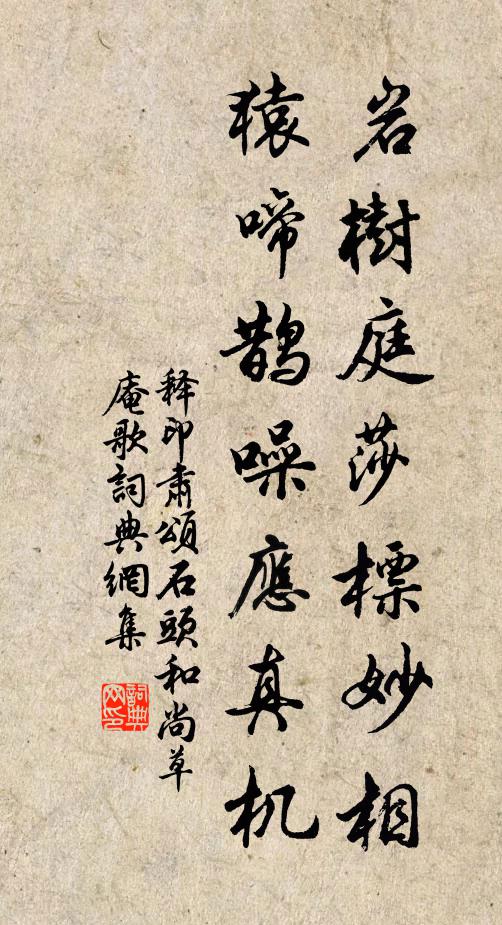 岩樹庭莎標妙相
猿啼鵲噪應真机
释印肅頌石頭和尚草
庵歌詞典網集
詞典
网印